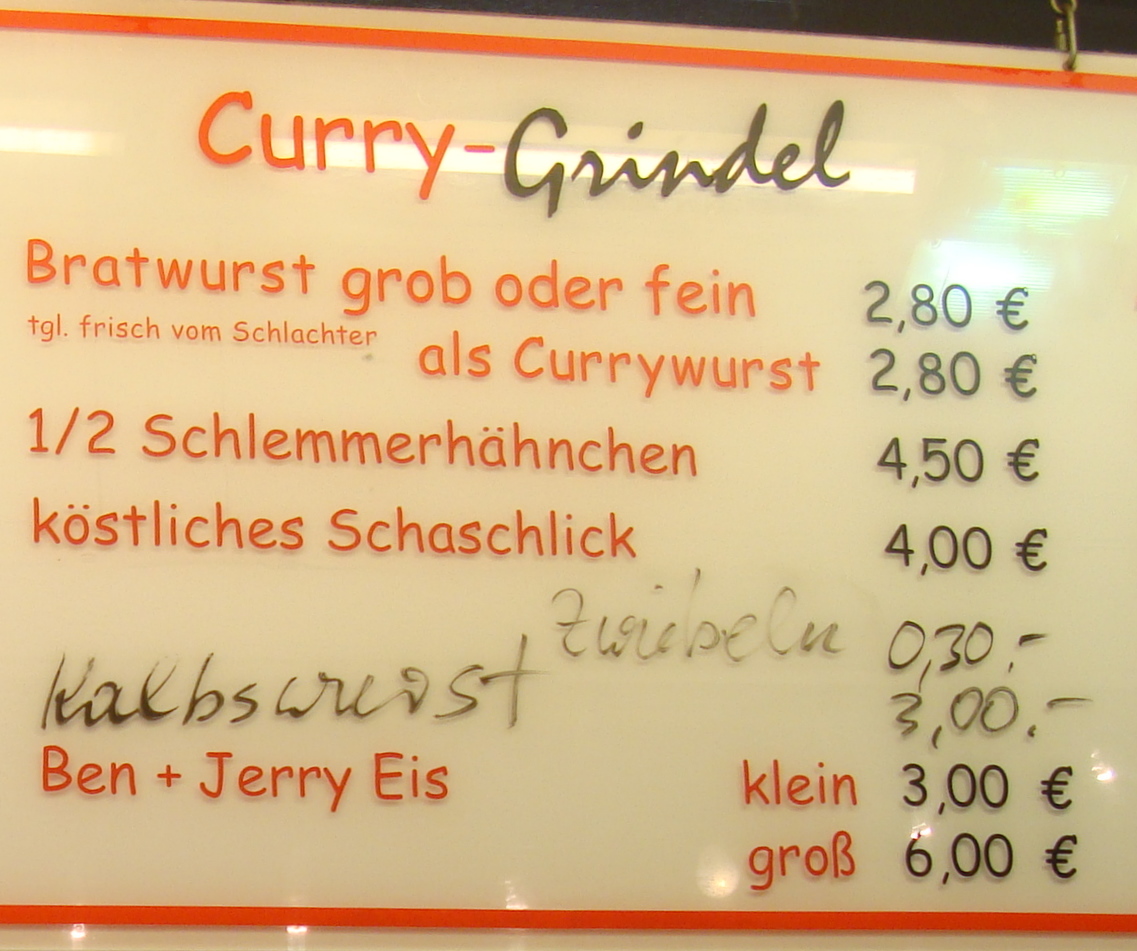 Curry-Grindel
Bratwurst grob oder fein 2,80 €
tgl. frisch vom Schlachter
als Currywurst 2,80 €
1/2 Schlemmerhähnchen 4,50 €
köstliches Schaschlick 4,00 €
Zwiebeln 0,30.-
Kalbswurst 3,00.-
Ben + Jerry Eis klein 3,00 €
groß 6,00 €